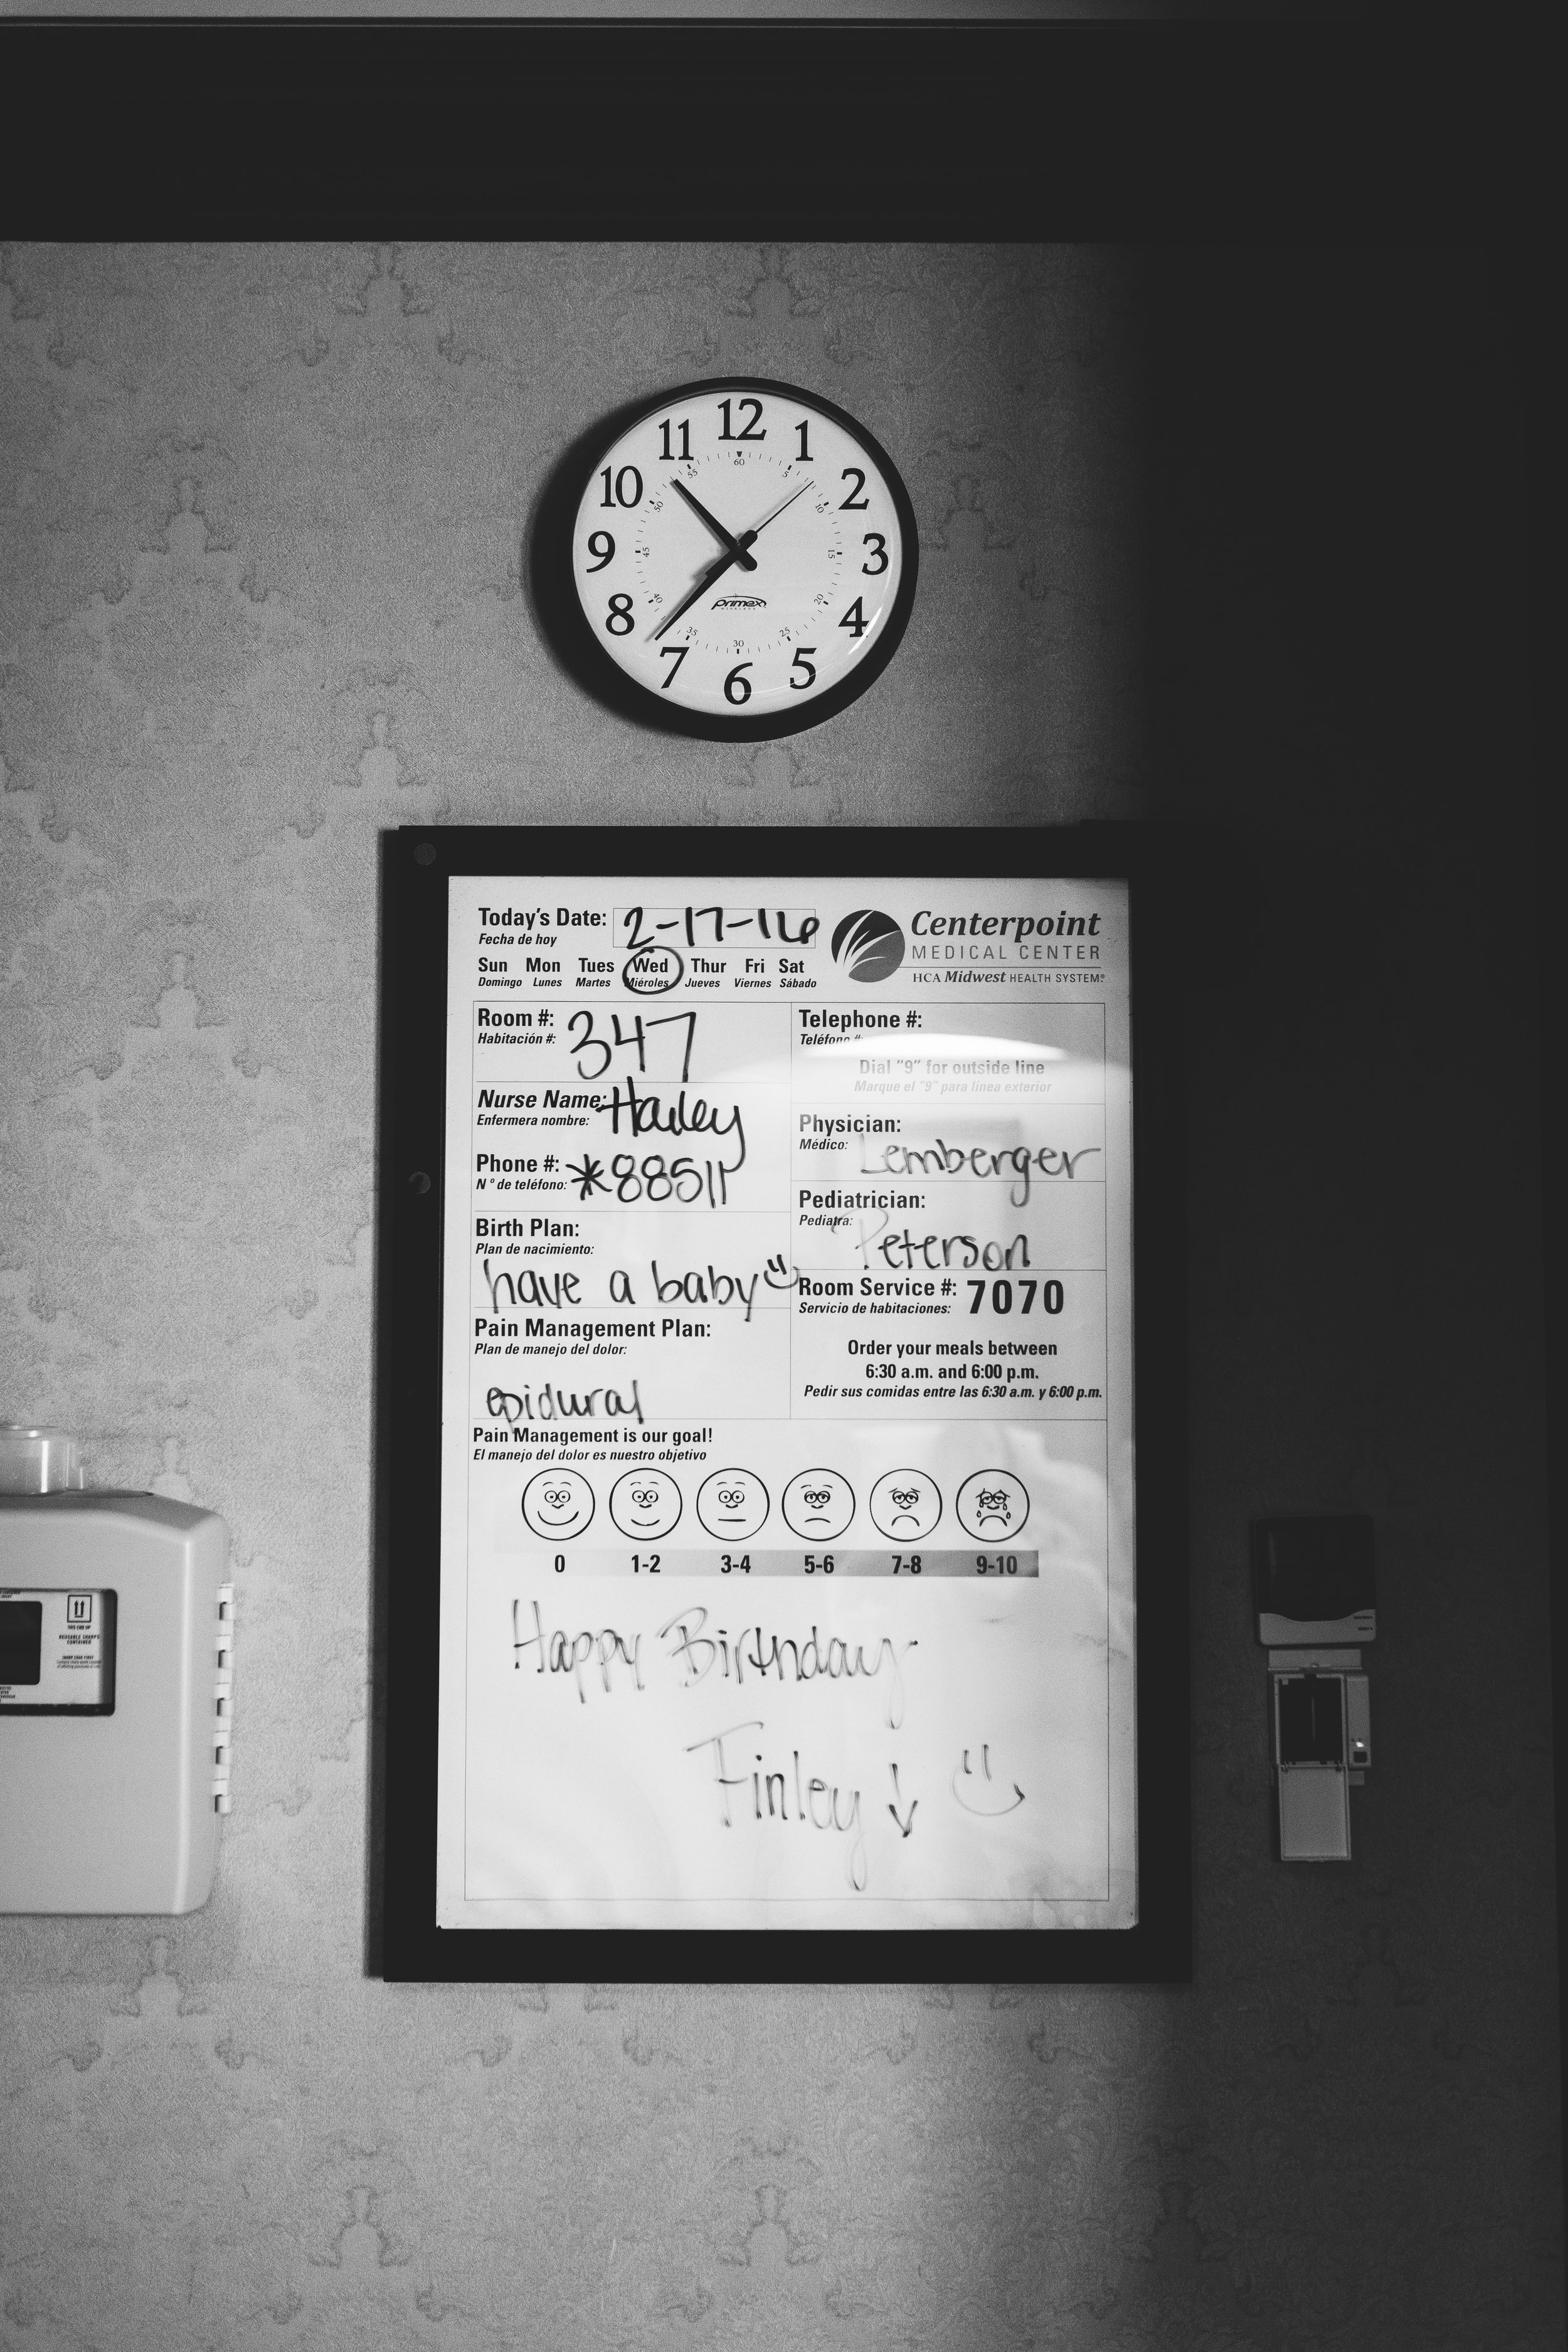 12
11
1
10
2
9
3
8
4
7
5
6
60
55
5
50
10
45
15
40
20
35
25
30
primex
Today's Date: 2-17-16
Fecha de hoy
Sun Mon Tues Wed Thur Fri Sat
Domingo Lunes Martes Miéroles Jueves Viernes Sábado
Centerpoint
MEDICAL CENTER
HCA Midwest HEALTH SYSTEM®
Room #: 347
Habitación #:
Nurse Name: Hailey
Enfermera nombre:
Phone #: *88511
Nº de teléfono:
Birth Plan:
Plan de nacimiento:
have a baby
Pain Management Plan:
Plan de manejo del dolor:
epidural
Telephone #:
Teléfono #:
Dial "9" for outside line
Marque el "9" para linea exterior
Physician:
Médico: Lemberger
Pediatrician:
Pediatra: Peterson
Room Service #: 7070
Servicio de habitaciones:
Order your meals between
6:30 a.m. and 6:00 p.m.
Pedir sus comidas entre las 6:30 a.m. y 6:00 p.m.
Pain Management is our goal!
El manejo del dolor es nuestro objetivo
0 1-2 3-4 5-6 7-8 9-10
Happy Birthday
Finley ↓
THIS END UP
REUSABLE SHARPS
CONTAINER